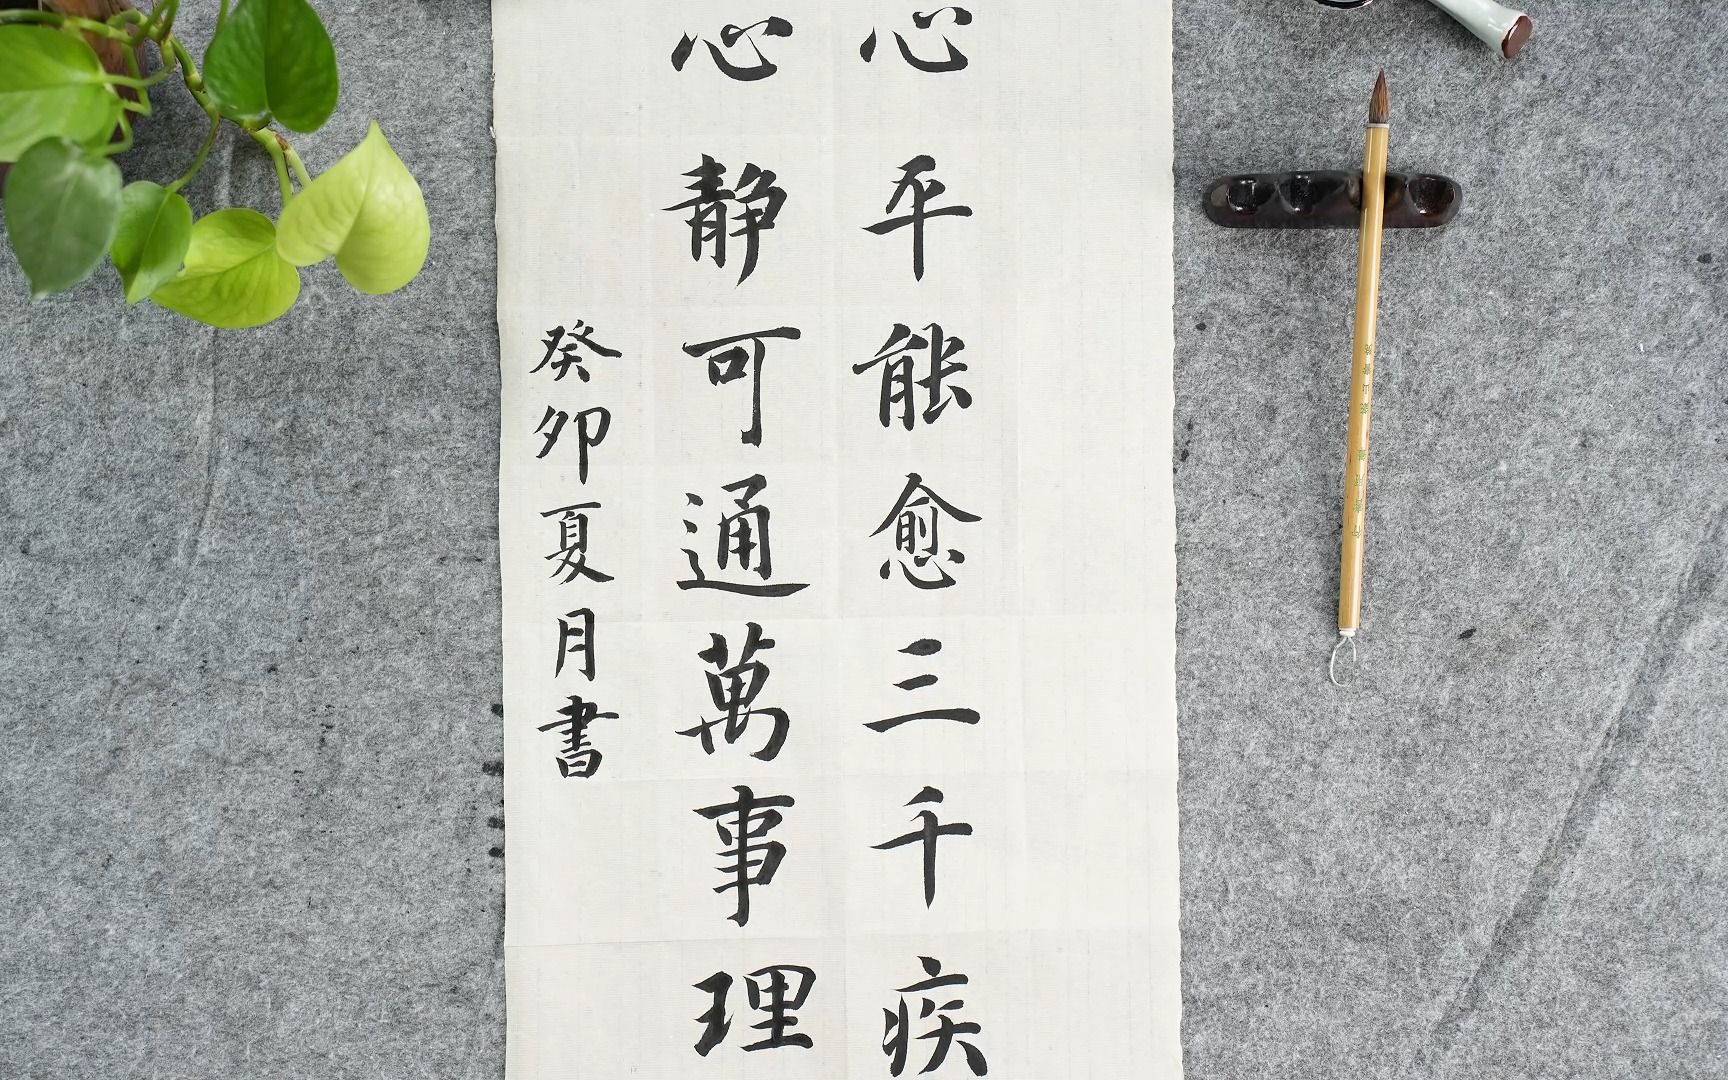 心平能愈三千疾
心静可通萬事理
癸卯夏月書